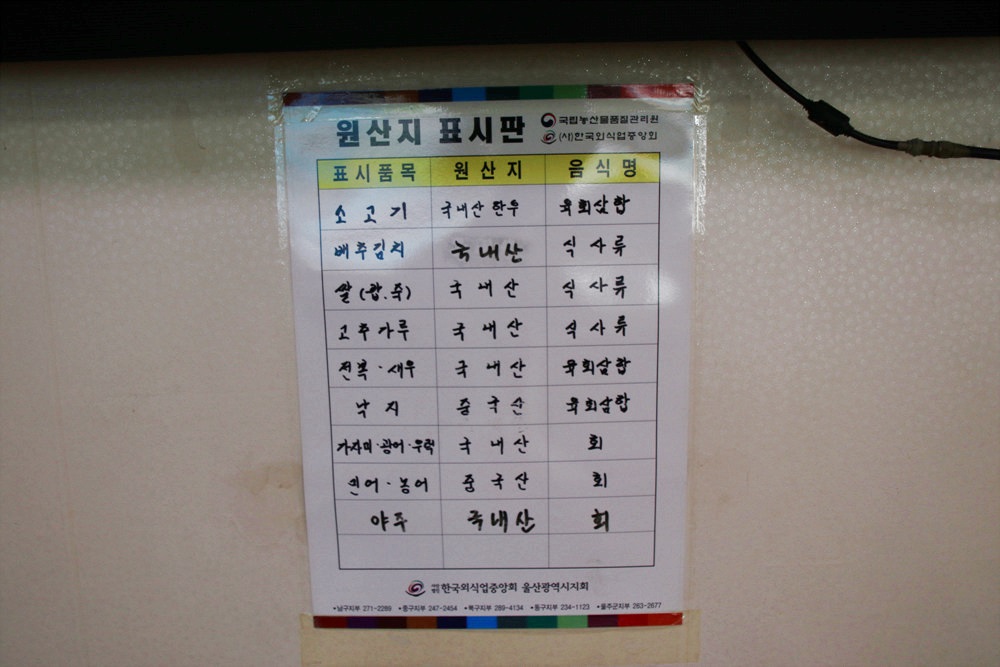 원산지 표시판
국립농산물품질관리원
(사)한국외식업중앙회
표시품목 원산지 음식명
소고기 국내산 한우 육회삼합
배추김치 국내산 식사류
쌀(밥.죽) 국내산 식사류
고추가루 국내산 식사류
전복·새우 국내산 육회삼합
낙지 중국산 육회삼합
가자미·광어·우럭 국내산 회
민어·농어 중국산 회
야주 국내산 회
한국외식업중앙회 울산광역시지회
•남구지부 271-2289 •중구지부 247-2454 •북구지부 289-4134 •동구지부 234-1123 •울주군지부 263-2677